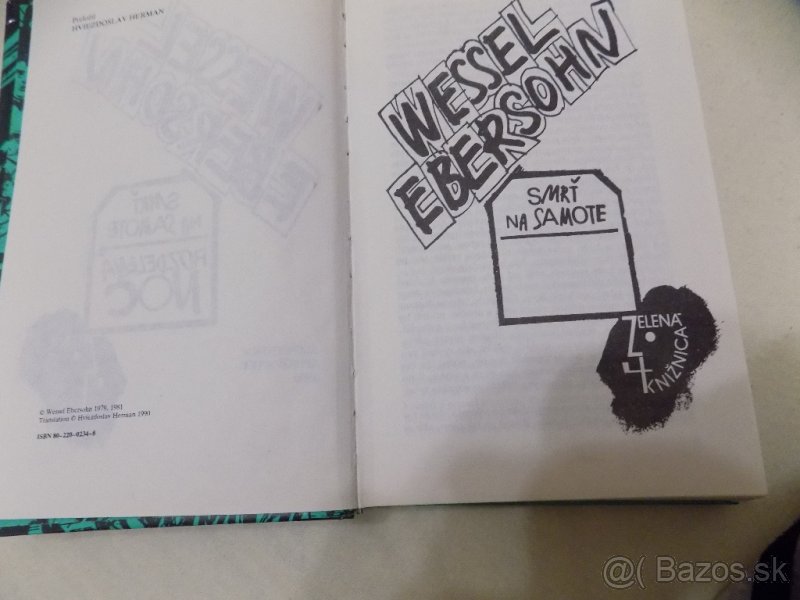 Preložil
HVIEZDOSLAV HERMAN
© Wessel Ebersohn 1979, 1981
Translation © Hviezdoslav Herman 1990
ISBN 80-220-0234-6
WESSEL
EBERSOHN
SMRŤ
NA SAMOTE
ZELENÁ
KNIŽNICA
SMRŤ
NA SAMOTE
ROZDELENÁ
NOC
@( Bazos.sk